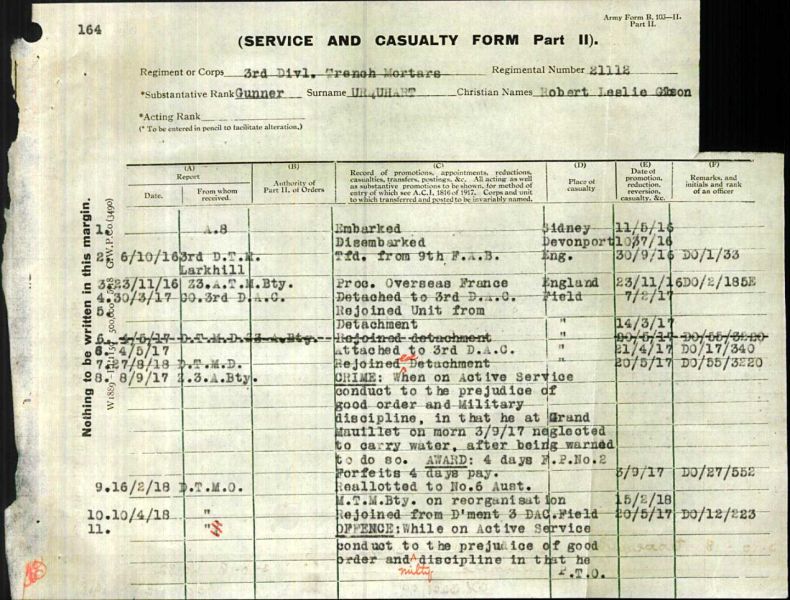 164
Army Form B. 103—II.
Part II.
(SERVICE AND CASUALTY FORM Part II).
Regiment or Corps 3rd Divl. Trench Mortars Regimental Number 21112
*Substantative Rank Gunner Surname URQUHART Christian Names Robert Leslie
*Acting Rank
(* To be entered in pencil to facilitate alteration.)
Nothing to be written in this margin.
(A)
Report
Date.
From whom received.
(B)
Authority of Part II. of Orders
(C)
Record of promotions, appointments, reductions,
casualties, transfers, postings, &c. All acting as well
as substantive promotions to be shown, for method of
entry of which see A.C.I. 1816 of 1917. Corps and unit
to which transferred and posted to be invariably named.
(D)
Place of casualty
(E)
Date of promotion, reduction, reversion, casualty, &c.
(F)
Remarks, and initials and rank of an officer
1. A.8 Embarked Sidney 11/5/16
Disembarked Devonport 10/7/16
2. 6/10/16 3rd D.T.M. Tfd. from 9th F.A.B. Eng. 30/9/16 DO/1/33
Larkhill
3. 23/11/16 Z3.A.T.M.Bty. Proc. Overseas France England 23/11/16 DO/2/185E
4. 30/3/17 CO.3rd D.A.C. Detached to 3rd D.A.C. Field 7/2/17
5. Rejoined Unit from
Detachment " 14/3/17
6. 4/5/17 D.T.M.D. Z3.A.Bty. Rejoined detachment " 20/5/17 DO/55/3220
6. 4/5/17 Attached to 3rd D.A.C. " 21/4/17 DO/17/340
7. 27/8/18 D.T.M.D. Rejoined ex Detachment " 20/5/17 DO/55/3220
8. 8/9/17 Z.3.A.Bty. CRIME: When on Active Service
conduct to the prejudice of
good order and Military
discipline, in that he at Grand
Mauillet on morn 3/9/17 neglected
to carry water, after being warned
to do so. AWARD: 4 days F.P.No.2
Forfeits 4 days pay. 3/9/17 DO/27/552
9. 16/2/18 D.T.M.O. Reallotted to No.6 Aust.
M.T.M.Bty. on reorganisation 15/2/18
10. 10/4/18 " Rejoined from D'ment 3 DAC. Field 20/5/17 DO/12/223
11. " OFFENCE: While on Active Service
conduct to the prejudice of good
order and milty discipline in that he
P.T.O.